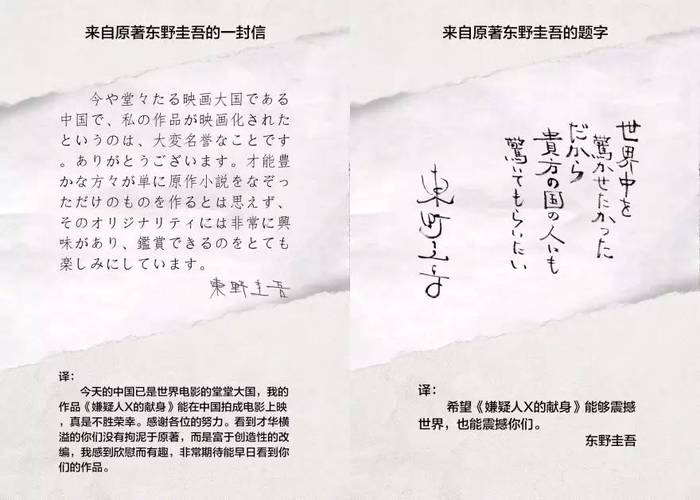 来自原著东野圭吾的一封信
今や堂々たる映画大国である
中国で、私の作品が映画化された
というのは、大変名誉なことです
。ありがとうございます。才能豊
かな方々が単に原作小説をなぞっ
ただけのものを作るとは思えず、
そのオリジナリティには非常に興
味があり、鑑賞できるのをとても
楽しみにしています。
東野圭吾
译：
今天的中国已是世界电影的堂堂大国，我的
作品《嫌疑人X的献身》能在中国拍成电影上映
，真是不胜荣幸。感谢各位的努力。看到才华横
溢的你们没有拘泥于原著，而是富于创造性的改
编，我感到欣慰而有趣，非常期待能早日看到你
们的作品。
来自原著东野圭吾的题字
世界中を
驚かせたかった
だから
貴方の国の人にも
驚いてもらいたい
東野圭吾
译：
希望《嫌疑人X的献身》能够震撼
世界，也能震撼你们。
东野圭吾